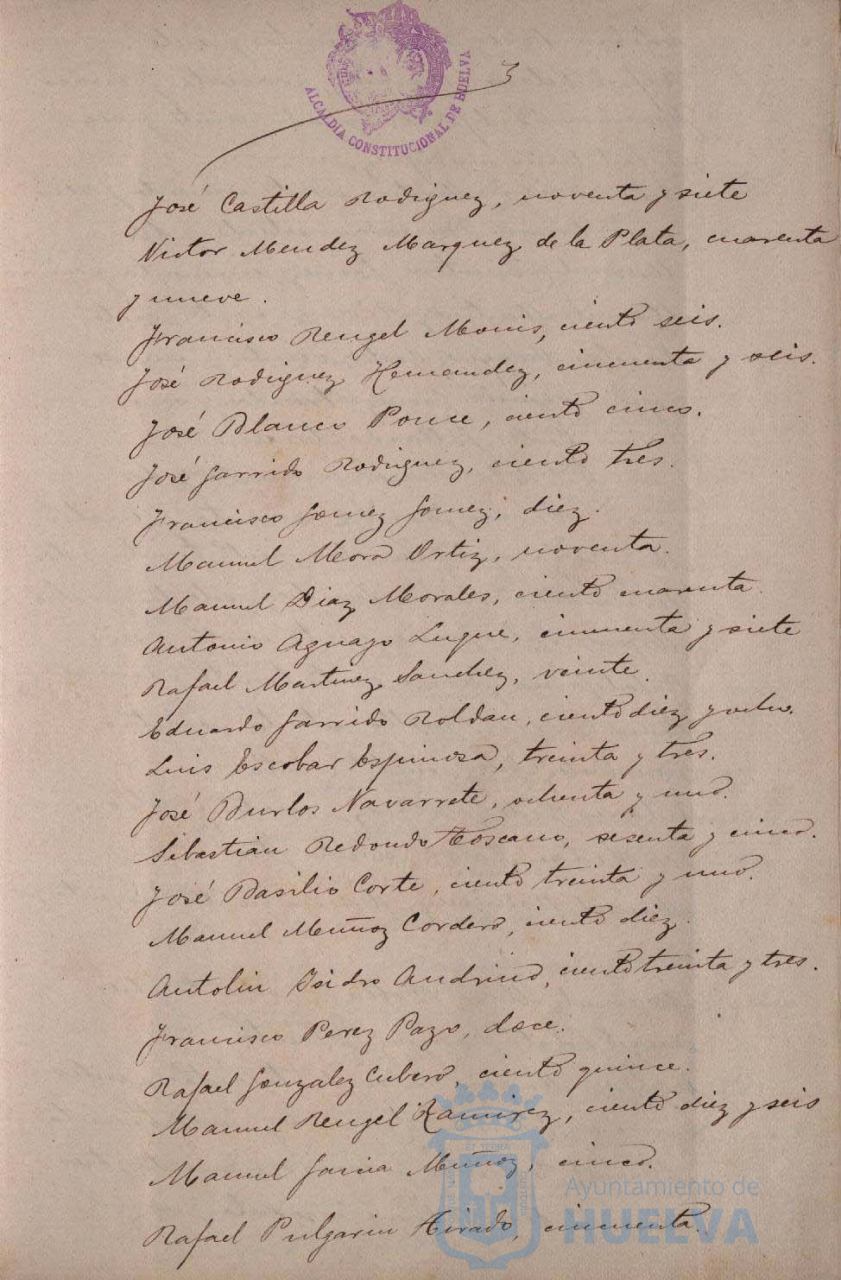 3
ALCALDIA CONSTITUCIONAL DE HUELVA
José Castilla Rodriguez, noventa y siete
Victor Mendez Marquez de la Plata, cuarenta
y nueve.
Francisco Rengel Monis, ciento seis.
José Rodriguez Hernandez, cincuenta y seis.
José Blanco Ponce, ciento cinco.
José Garrido Rodriguez, ciento tres.
Francisco Gomez Gomez, diez.
Manuel Mora Ortiz, noventa.
Manuel Diaz Morales, ciento cuarenta.
Antonio Aguayo Luque, cincuenta y siete
Rafael Martinez Sanchez, veinte.
Eduardo Garrido Roldan, ciento diez y ocho.
Luis Escobar Espinosa, treinta y tres.
José Burlos Navarrete, ochenta y uno.
Sebastián Redondo Toscano, sesenta y cinco.
José Basilio Corte, ciento treinta y uno.
Manuel Muñoz Cordero, ciento diez.
Antolin Isidro Andrino, ciento treinta y tres.
Francisco Perez Pazo, doce.
Rafael Gonzalez Cubero, ciento quince.
Manuel Rengel Ramirez, ciento diez y seis
Manuel Garcia Muñoz, cinco.
Rafael Pulgarin Tirado, cincuenta.
Ayuntamiento de
HUELVA